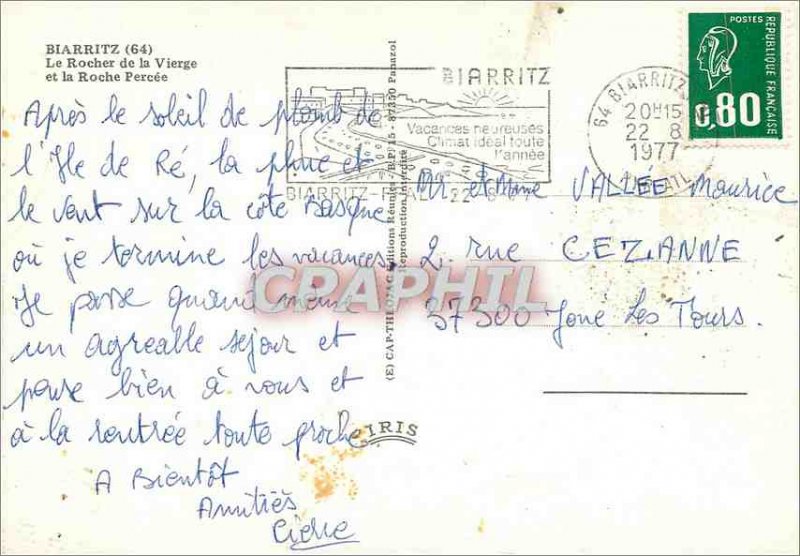 BIARRITZ (64)
Le Rocher de la Vierge
et la Roche Percée
Après le soleil de plomb de
l'Ile de Ré, la pluie et
le vent sur la côte Basque
où je termine les vacances.
Je passe quand même
un agréable séjour et
pense bien à vous et
à la rentrée toute proche
A Bientôt
Amitiés
(E) CAP-THEOJAC Editions Réunies - B.P. 15 - 87350 Panazol
Reproduction interdite
IRIS
BIARRITZ
Vacances heureuses
Climat idéal toute
l'année
64 BIARRITZ
20H15
22 8
1977
POSTES
REPUBLIQUE FRANÇAISE
0,80
Mr et Mme VALLÉE Maurice
2, rue CEZANNE
37300 Joué Les Tours.
CPAPHIL